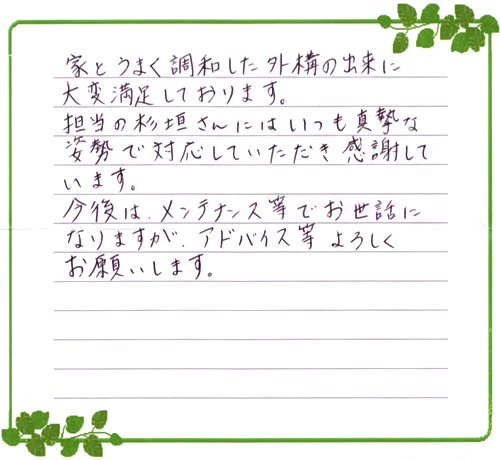 家とうまく調和した外構の出来に
大変満足しております。
担当の杉垣さんにはいつも真摯な
姿勢で対応していただき感謝して
います。
今後は、メンテナンス等でお世話に
なりますが、アドバイス等よろしく
お願いします。